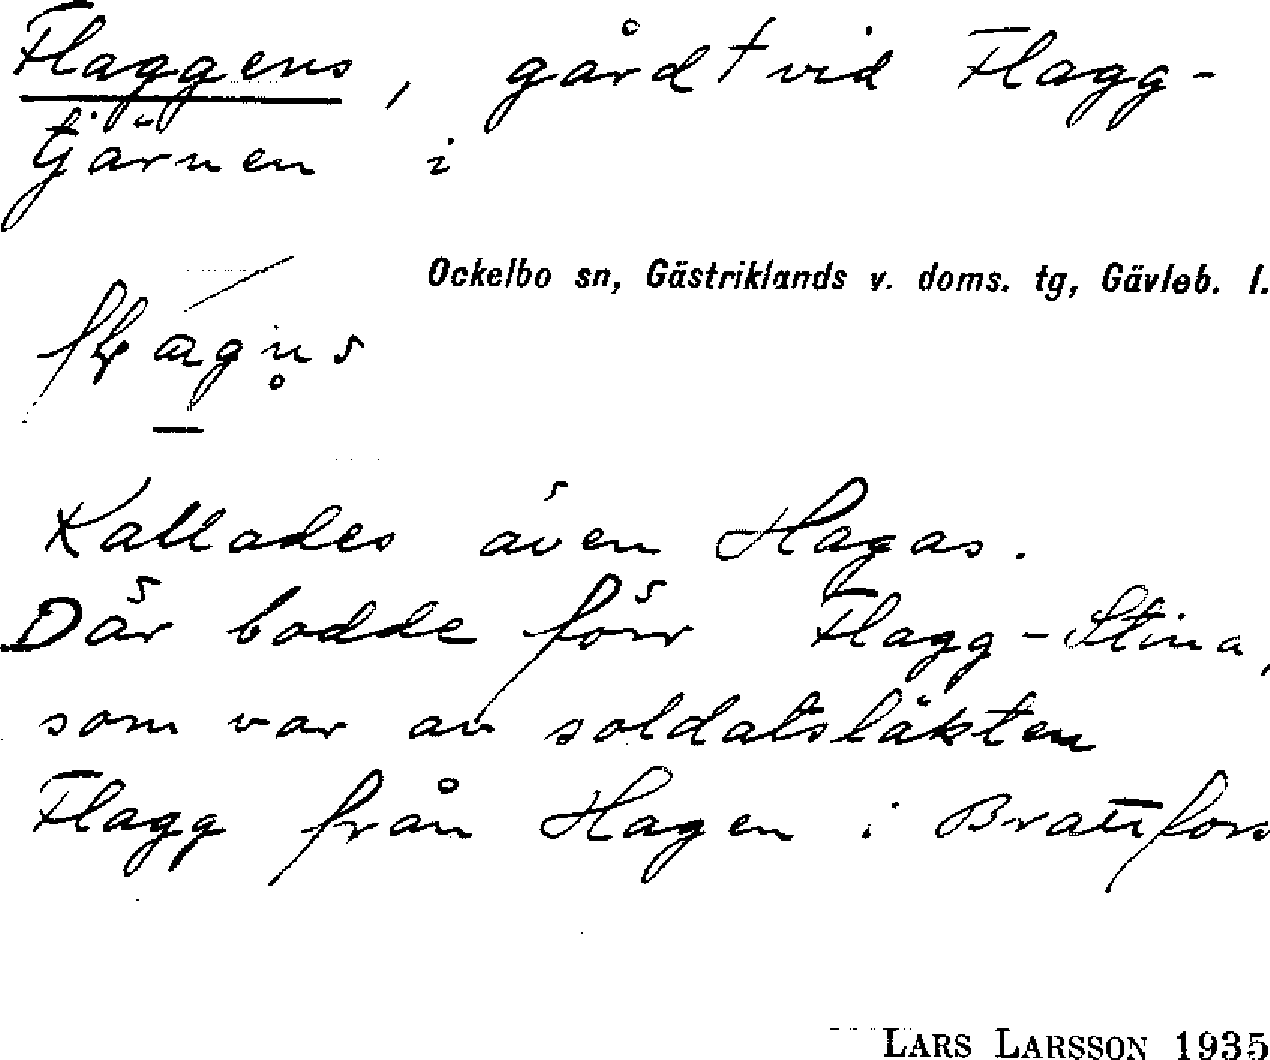 Flaggens, gård † vid Flagg-
tjärnen i
Ockelbo sn, Gästriklands v. doms. tg, Gävleb. l.
Kallades även Hagas.
Där bodde förr Flagg-Stina,
som var av soldatsläkten
Flagg från Hagen i Brattfors
LARS LARSSON 1935